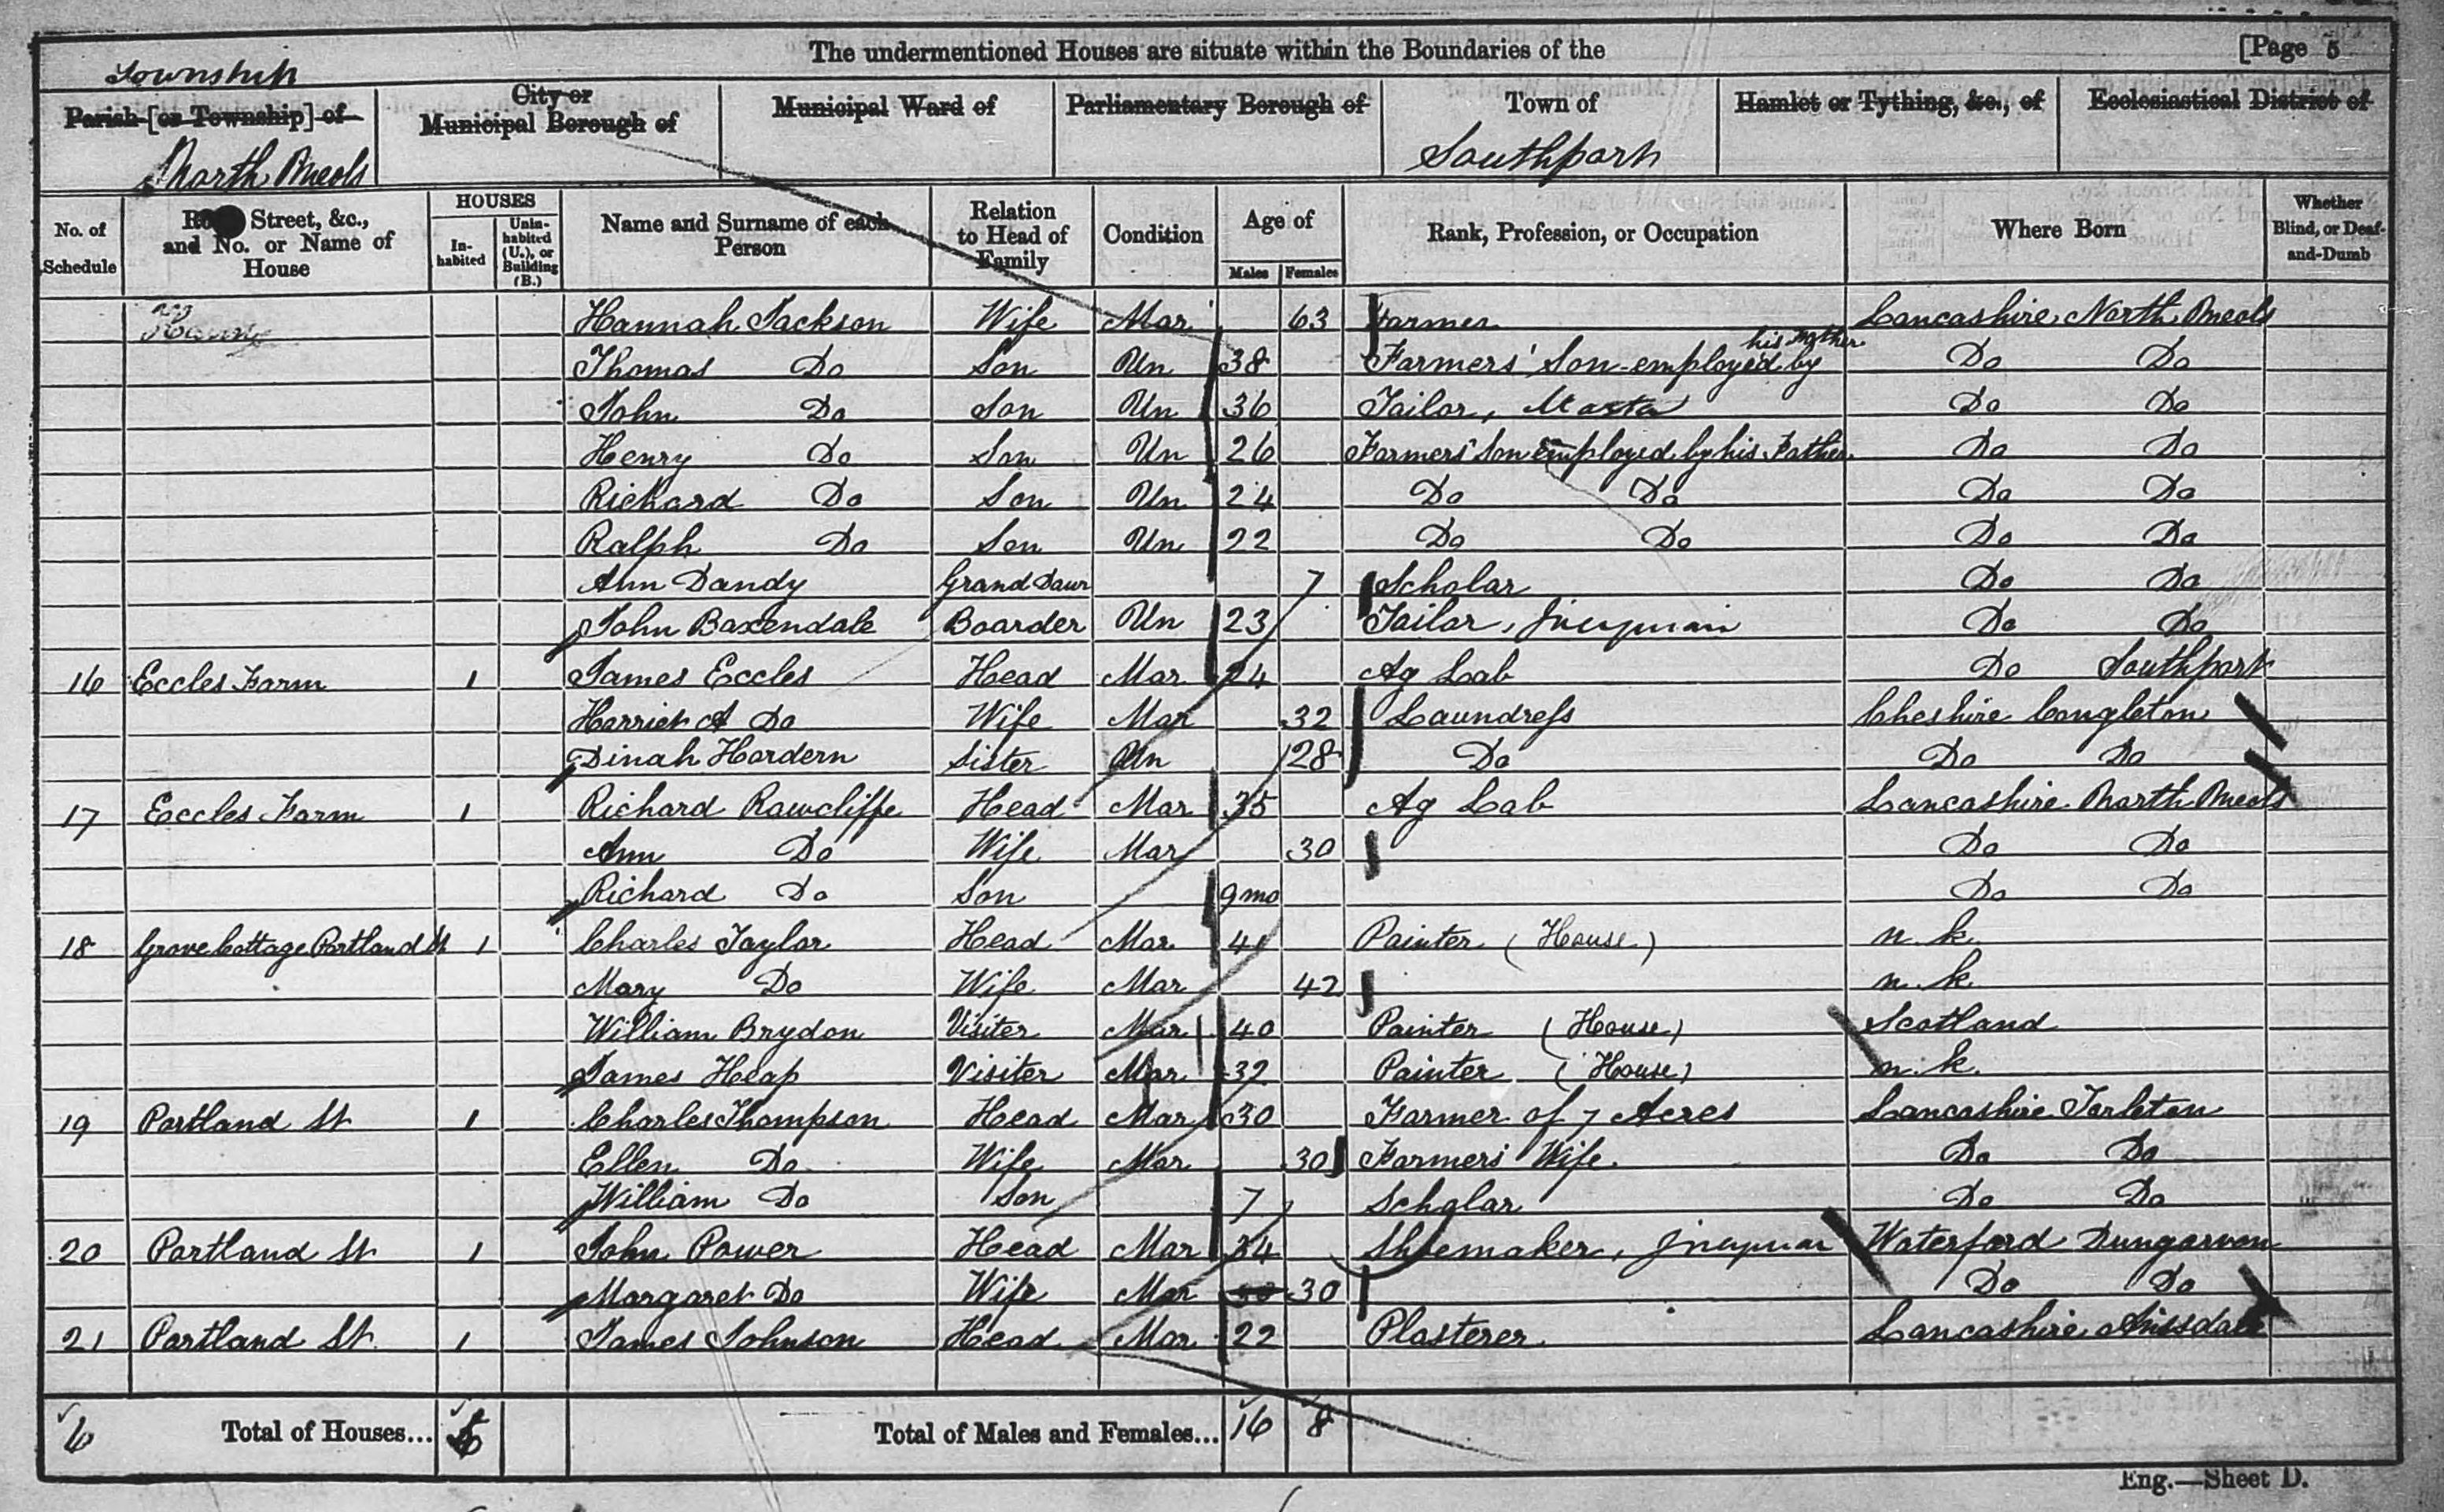 The undermentioned Houses are situate within the Boundaries of the [Page 5
Township
Parish [or Township] of City or Municipal Borough of Municipal Ward of Parliamentary Borough of Town of Hamlet or Tything, &c., of Ecclesiastical District of
North Meols Southport
No. of Schedule Street, &c., and No. or Name of House HOUSES In-habited Unin-habited (U.), or Building (B.) Name and Surname of each Person Relation to Head of Family Condition Age of Males Females Rank, Profession, or Occupation Where Born Whether Blind, or Deaf-and-Dumb
Hannah Jackson Wife Mar 63 Farmer Lancashire North Meols
Thomas Do Son Un 38 Farmers' Son employed by his Mother Do Do
John Do Son Un 36 Tailor, Master Do Do
Henry Do Son Un 26 Farmers' Son employed by his Father Do Do
Richard Do Son Un 24 Do Do Do Do
Ralph Do Son Un 22 Do Do Do Do
Ann Dandy Grand Daur 7 Scholar Do Do
John Baxendale Boarder Un 23 Tailor, Jneyman Do Do
16 Eccles Farm 1 James Eccles Head Mar 24 Ag Lab Do Southport
Harriet A Do Wife Mar 32 Laundress Cheshire Congleton
Dinah Hordern Sister Un 28 Do Do Do
17 Eccles Farm 1 Richard Rawcliffe Head Mar 35 Ag Lab Lancashire North Meols
Ann Do Wife Mar 30 Do Do
Richard Do Son 9 mo Do Do
18 Grove Cottage Portland St 1 Charles Taylor Head Mar 41 Painter (House) n.k.
Mary Do Wife Mar 42 n.k.
William Brydon Visiter Mar 40 Painter (House) Scotland
James Heap Visiter Mar 32 Painter (House) n.k.
19 Portland St 1 Charles Thompson Head Mar 30 Farmer of 7 Acres Lancashire Tarleton
Ellen Do Wife Mar 30 Farmers' Wife Do Do
William Do Son 7 Scholar Do Do
20 Portland St 1 John Power Head Mar 34 Shoemaker, Jneyman Waterford Dungarvon
Margaret Do Wife Mar 30 Do Do
21 Portland St 1 James Johnson Head Mar 22 Plasterer Lancashire Ainsdale
6 Total of Houses... 6 Total of Males and Females... 16 8
Eng.—Sheet D.